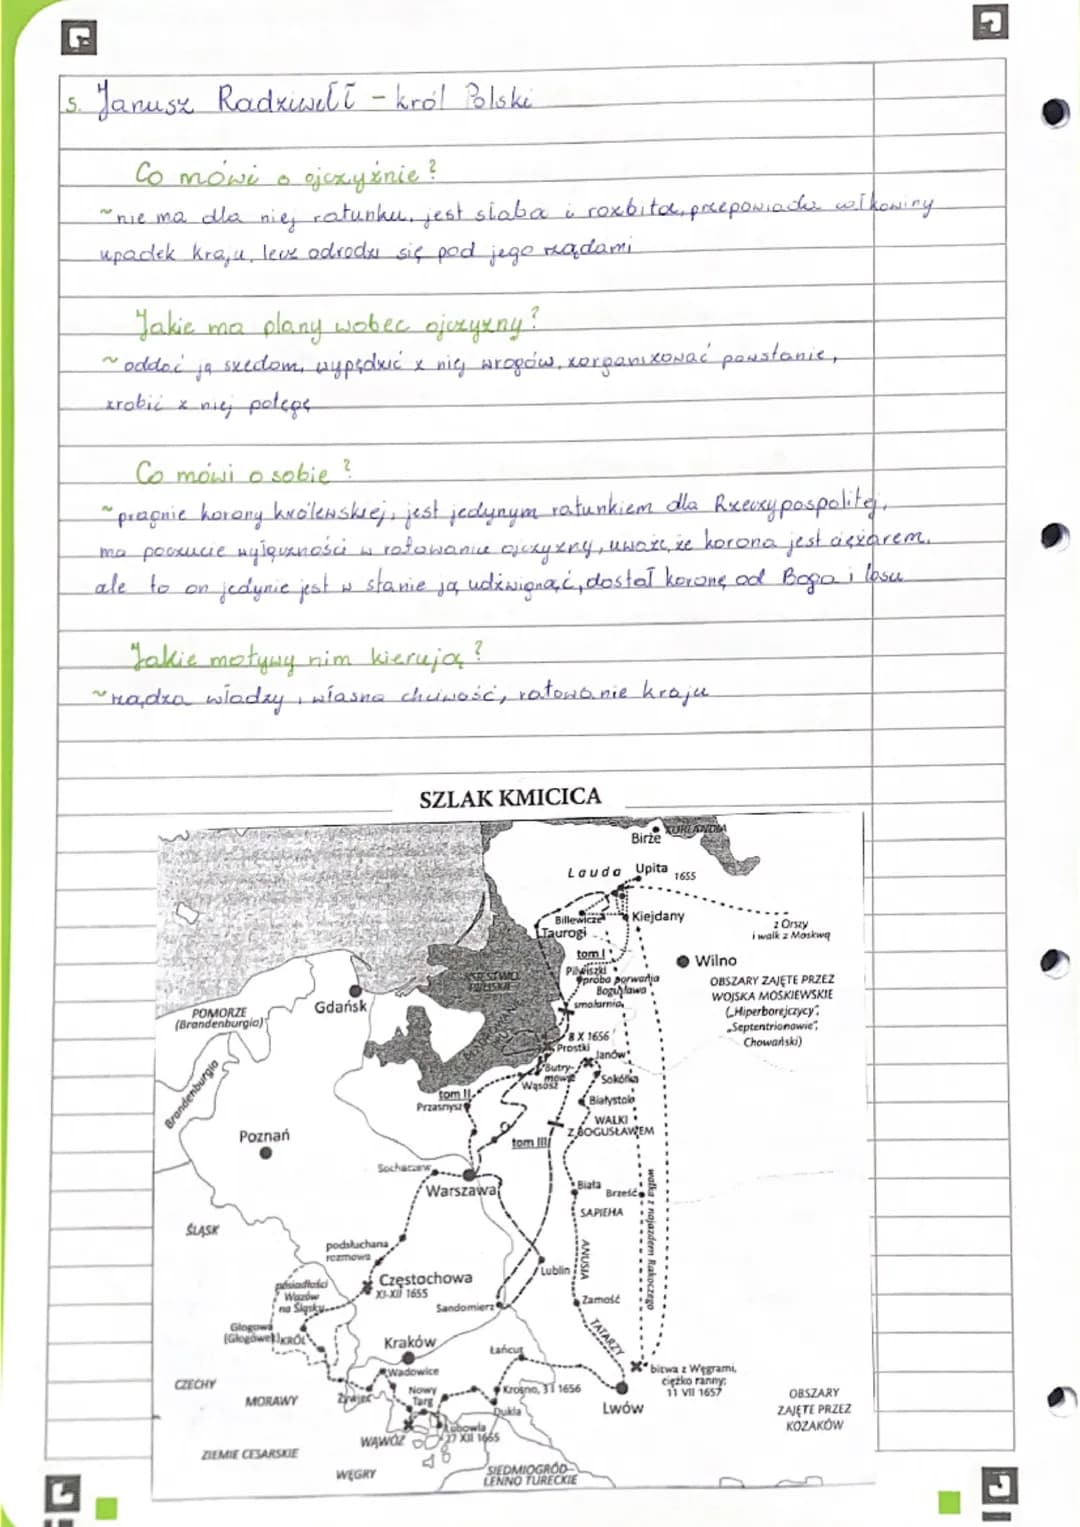 5. Janusz Radziwiłł - król Polski
Co mówi o ojczyźnie?
~nie ma dla niej ratunku, jest słaba i rozbita, przepowiada całkowity
upadek kraju, lecz odrodzi się pod jego rządami
Jakie ma plany wobec ojczyzny?
~oddać ją szwedom, wypędzić z niej wrogów, zorganizować powstanie,
zrobić z niej potęgę
Co mówi o sobie?
~pragnie korony królewskiej, jest jedynym ratunkiem dla Rzeczypospolitej,
ma poczucie wyłączności w ratowaniu ojczyzny, uważa, że korona jest ciężarem,
ale to on jedynie jest w stanie ją udźwignąć, dostał koronę od Boga i losu
Jakie motywy nim kierują?
~rządza władzy, własna chciwość, ratowanie kraju
SZLAK KMICICA
Birże
KURLANDIA
Lauda
Upita
1655
Billewicze
Kiejdany
Taurogi
z Orszy
i walk z Moskwą
tom I
Wilno
Pilwiszki
próba porwania
Bogusława
smolarnia
OBSZARY ZAJĘTE PRZEZ
WOJSKA MOSKIEWSKIE
("Hiperborejczycy",
"Septentrionowie",
Chowański)
Gdańsk
POMORZE
(Brandenburgia)
Brandenburgia
8 X 1656
Prostki
Janów
Wąsosz
Sokółka
tom II
Przasnysz
Białystok
WALKI
Z BOGUSŁAWEM
tom III
Poznań
Sochaczew
Warszawa
Biała
Brześć
SAPIEHA
walka z najazdem Rakoczego
ŚLĄSK
podsłuchana
rozmowa
ANUSIA
Lublin
Częstochowa
XI-XII 1655
posiadłości
Wazów
na Śląsku
Sandomierz
Zamość
Głogowa
(Głogówek)
KRÓL
TATARZY
Kraków
Łańcut
Wadowice
bitwa z Węgrami,
ciężko ranny;
11 VII 1657
CZECHY
MORAWY
Żywiec
Nowy
Targ
Krosno, 31 1656
Dukla
Lwów
OBSZARY
ZAJĘTE PRZEZ
KOZAKÓW
Lubowla
27 XII 1655
WĄWÓZ
ZIEMIE CESARSKIE
WĘGRY
SIEDMIOGRÓD
LENNO TURECKIE